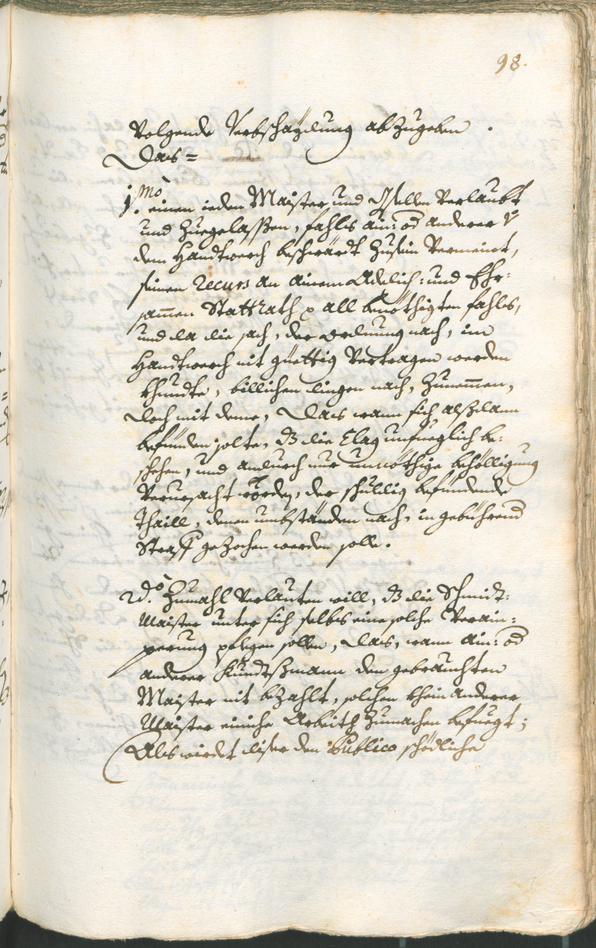 98.
Volgende Verbschaydung abzugeben.
Das=
1.mo einen ieden Maister und Gsellen Verlaubt
und Zuegelassen, fahls ain: od anderer v:
dem Handtwerch beschwärdt Zusein Vermeint,
seinen Recurs an ainem Adelich: und Ehr:
samen Stattrath all benöthigten fahls,
und da die sach, der ordnung nach, im
Handtwerch nit güettig Vertragen werden
khundte, billichen dingen nach, Zunemmen,
doch mit deme, das wann sich alsdann
befünden solte, dz die Clag unfueglich be:
schehen, und andurch nur unnöthige behölligung
Verursacht worden, der schuldig befundende
Thaill, denen umbständen nach, in gebührend
Straff gezochen werden solle.
2do. Zumahl Verlauten will, dz die Schmidt:
Maister unter sich selbs eine solche Verain:
pflegen sollen, das, wann ain: od
anderer Kundtsmann den gebrauchten
Maister nit bezahlt, solchen khein anderer
Maister einiche Arbeith Zumachen befuegt;
Als wirdet diser dem Publico schödliche